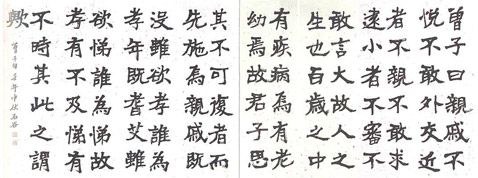 曾子曰親戚不
悅不敢外交近
者不親不敢求
遠小者不審不
敢言大故人之
生也百歲之中
有疾病焉有老
幼焉故君子思
其不可復者而
先施焉親戚既
沒雖欲孝誰為
孝年既耆艾雖
欲悌誰為悌故
孝有不及悌有
不時其此之謂
歟